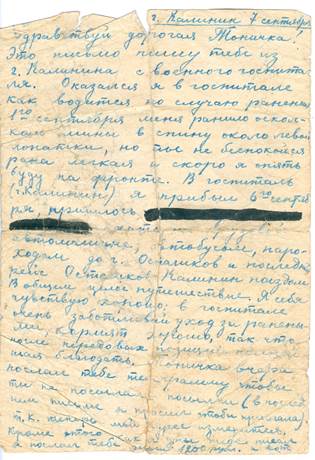 г. Калинин 7 сентября
Здравствуй дорогая Тоничка!
Это письмо пишу тебе из
г. Калинина с военного госпита
ля. Оказался я в госпитале
как водится по случаю ранения
1го сентября меня ранило оскол-
ком мины в спину около левой
лопатки, но ты не беспокойся
рана легкая и скоро я опять
буду на фронте. В госпиталь
(г. Калинин) я прибыл 6го сентяб
ря, пришлось
автомашине, автобусом, паро-
ходом до г. Осташков и последний
рейс Осташков Калинин поездом.
В общем целое путешествие. Я себя
чувствую хорошо; в госпитале
очень заботливый уход за ранены
ми, кормят хорошо, так что
после передовых позиций
благодать. Тоничка вчера
послал тебе телеграмму чтобы
ты не посылала посылки (в послед
нем письме я просил чтобы прислала)
т.к. теперь мой адрес изменится.
Кроме этого
я послал тебе 1200 руб. и вот